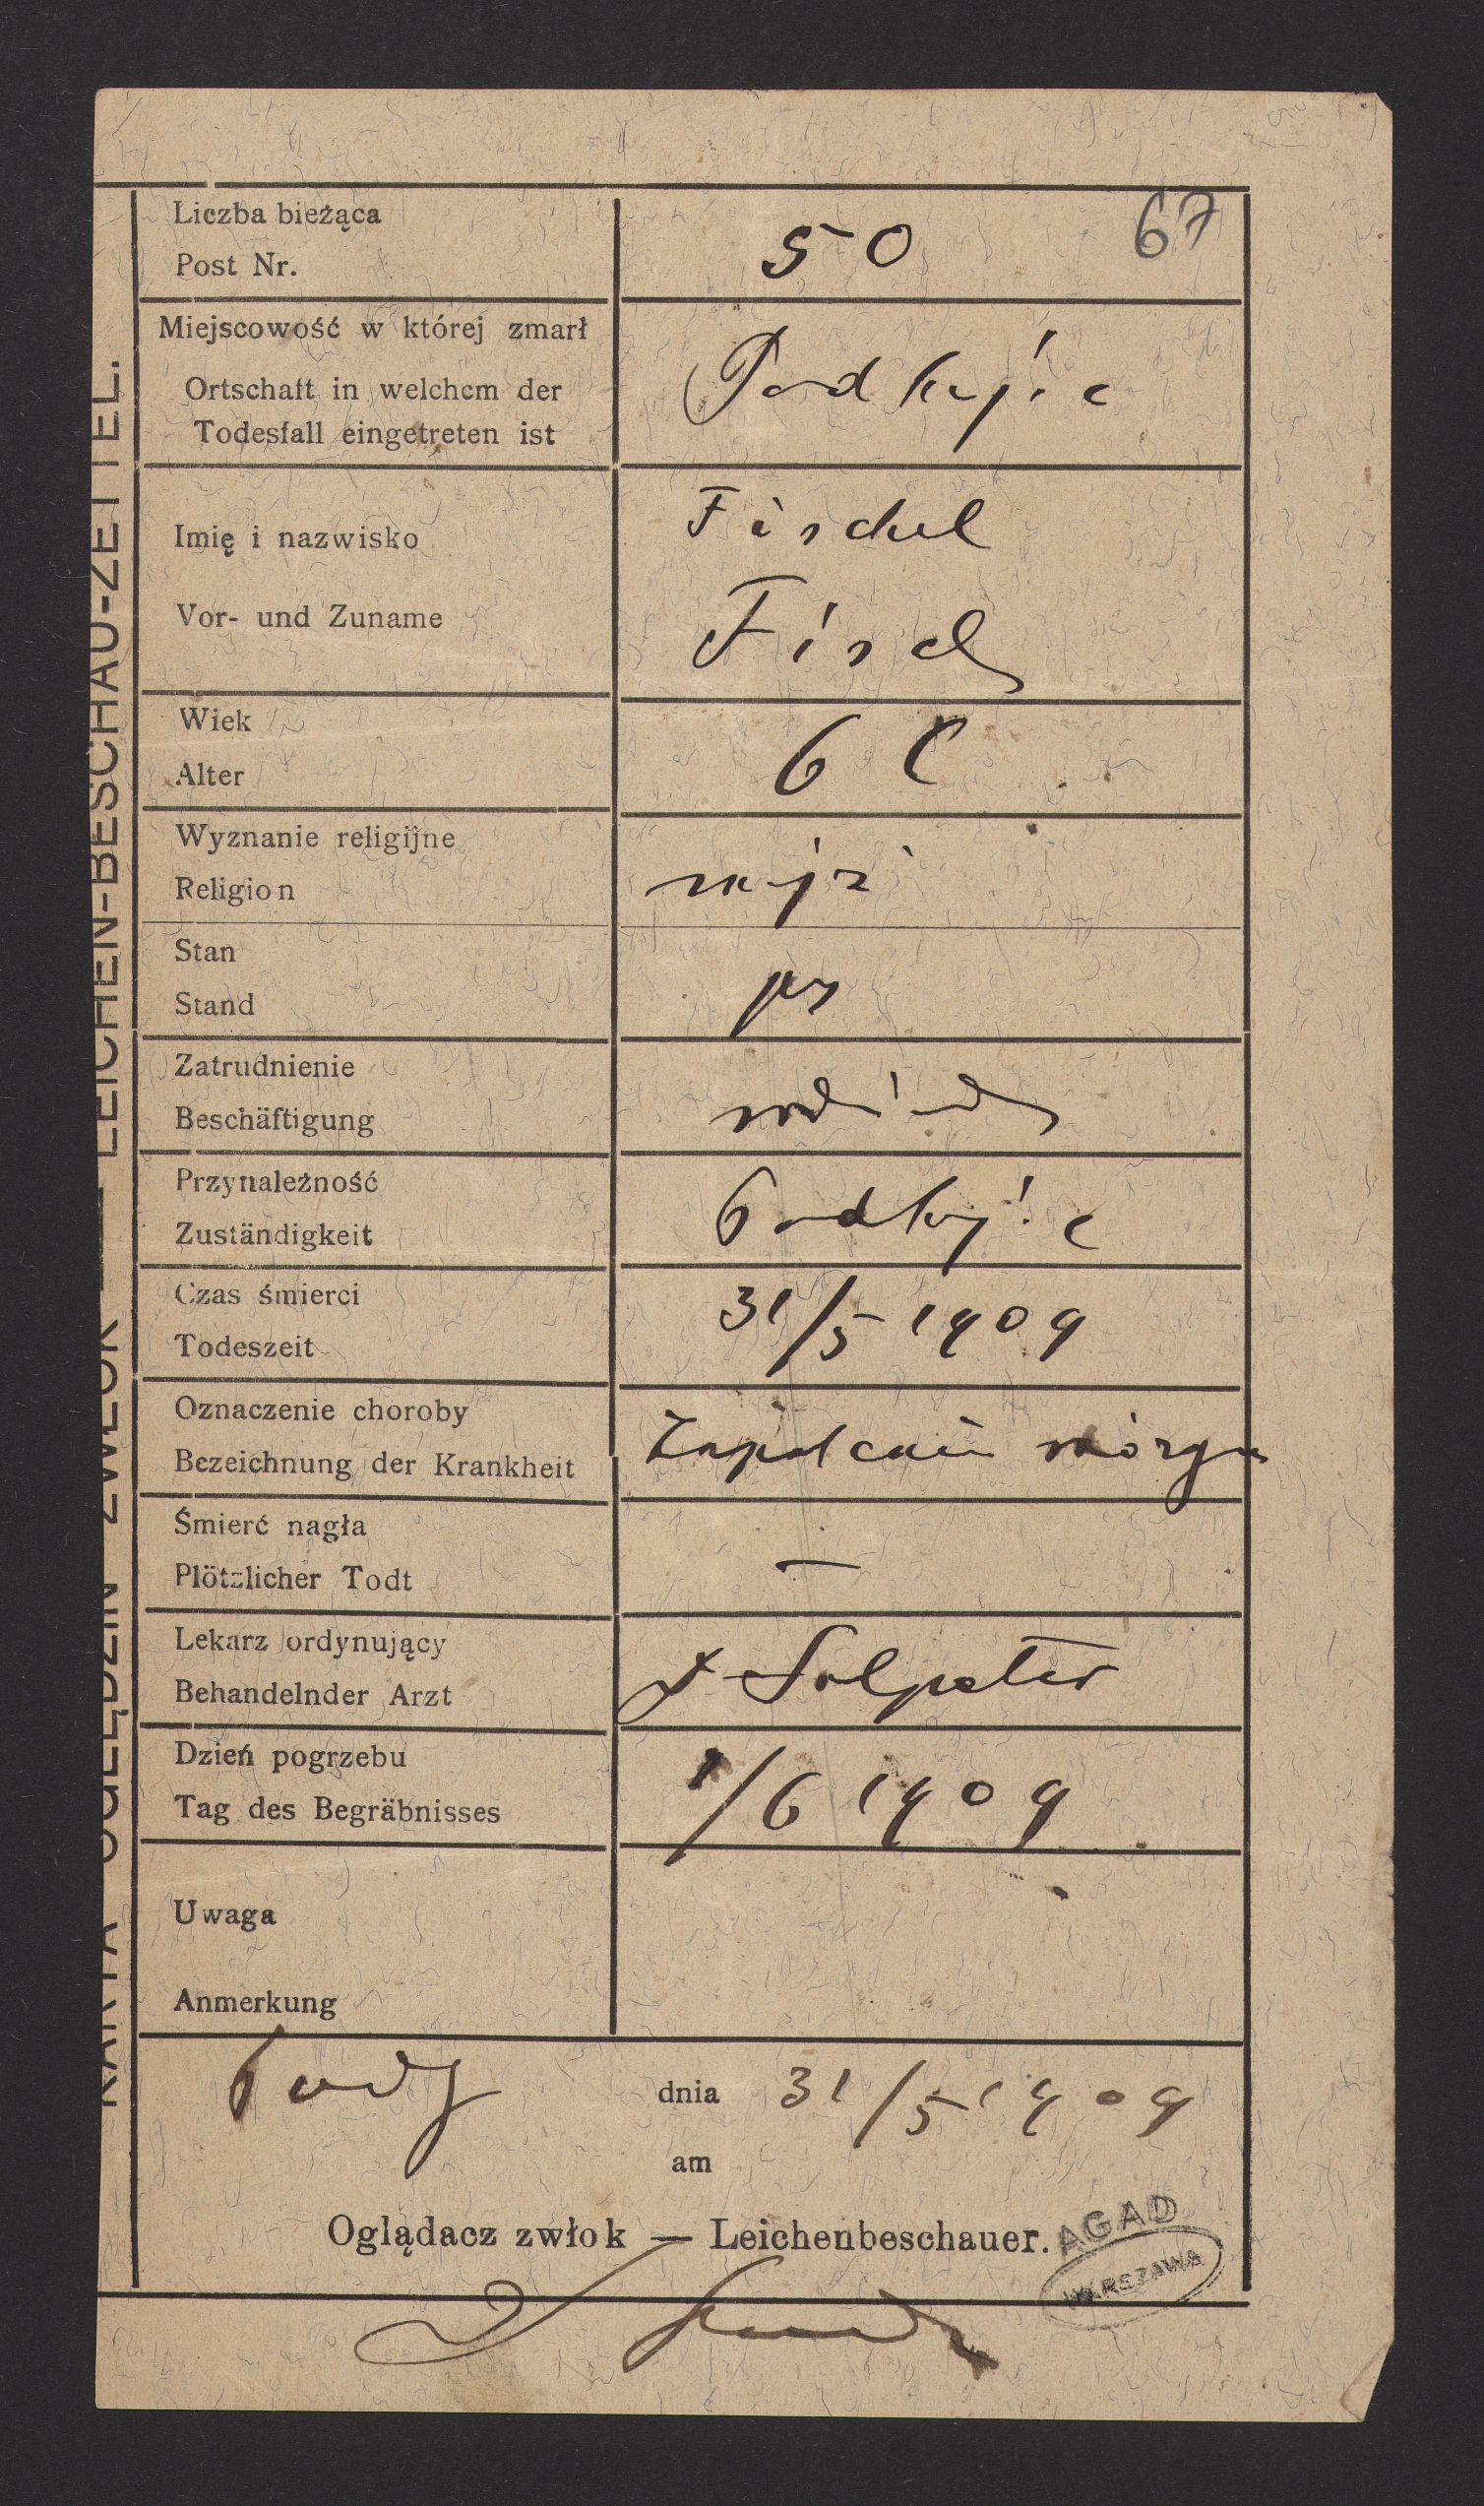 Liczba bieżąca
Post Nr.
50
67
Miejscowość w której zmarł
Ortschaft in welchem der
Todesfall eingetreten ist
Imię i nazwisko
Vor- und Zuname
Fischel
Fisch
Wiek
Alter
6
Wyznanie religijne
Religion
mojż
Stan
Stand
Zatrudnienie
Beschäftigung
Przynależność
Zuständigkeit
Czas śmierci
Todeszeit
31/5 1909
Oznaczenie choroby
Bezeichnung der Krankheit
Zapalenie mózgu
Śmierć nagła
Plötzlicher Todt
—
Lekarz ordynujący
Behandelnder Arzt
Salpeter
Dzień pogrzebu
Tag des Begräbnisses
1/6 1909
Uwaga
Anmerkung
dnia 31/5 1909
am
Oglądacz zwłok — Leichenbeschauer.
AGAD
WARSZAWA
KARTA OGLĘDZIN ZWŁOK — LEICHEN-BESCHAU-ZETTEL.